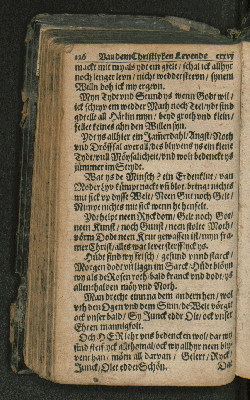 126 Van dem Christlyken Levende
mackt mit my als ydt em gfelt / schal ick allhyr
noch lenger levn / nicht wedderstrevn / synem
Welln do ick my ergevn.
Myn Tydt und Stund ys wenn Godt wil /
ick schryv em wedder Math noch Teel / ydt sind
getellt all Härlin myn / beyd groth und klein /
fellet keines ahn den Willen syn.
Ydt ys allhier ein Jamerdahl / Angst / Noth
und Dröffsal averal / des blyvens ys ein klene
Tydt / vull Möysalicheit / und woll bedencket ys
jümmer im Stryde.
Wat ys de Minsch? ein Erdenklut / van
Moder lyv kümpt nackt un blot / bringt nichtes
mit sick up disse Welt / Neen Gut noch Gelt /
Nimpt nichtes mit sick wenn he henfelt.
Ydt helpt neen Ryckdom / Gelt noch Got /
neen Kunst / noch Gunst / neen stolte Moth /
vörm Dode neen Krut gewassen ist / myn fra-
mer Christ / alles wat levet sterflick ys.
Hüde sind wy frisch / gesund und starck /
Morgen dodt und liggn im Sarck / Hüde blöyn
wy als de Rosen roth / bald kranck und dodt / ys
allenthalven möy und Noth.
Man drecht einn na dem andern hen / wol
uth den Ogen und dem Sinn / de Welt vörget
ock unser bald / Sy Junck edder Olt / ock unser
Ehren mannigfolt.
Och HERR lehr uns bedencken wol / dat wy
sind sterflyck althomal / ock wy allhyr neen bly-
vent han / möth all darvan / Geleert / Ryck /
Junck / Olt edder Schön.